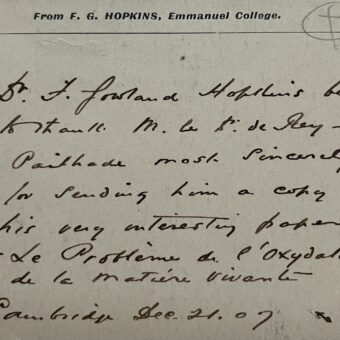 From F. G. HOPKINS, Emmanuel College.
Dr. F. Gowland Hopkins be
to thank M. le Dr. de Rey-
Pailhade most sincerely
for sending him a copy
his very interesting paper
Le Problème de l'Oxydat
de la matière vivante
Cambridge Dec. 21. 07